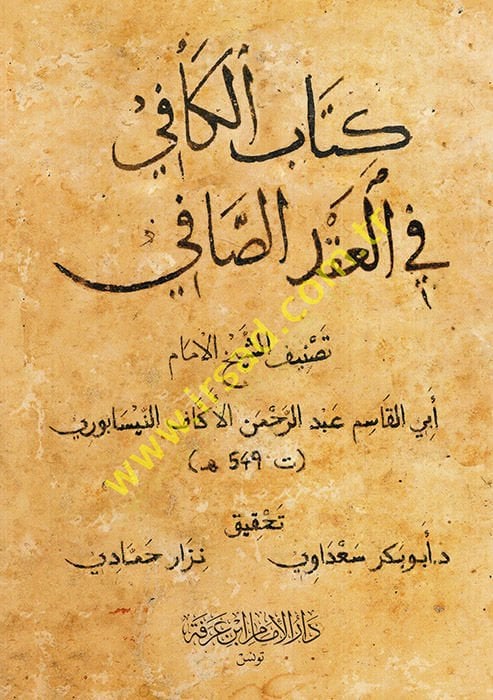 كتاب الكافي
في العقد الصافي
تصنيف الشيخ الإمام
أبي القاسم عبد الرحمن الأكاف النيسابوري
(ت 549 هـ)
تحقيق
د. أبو بكر سعداوي نزار حمّادي
دار الإمام ابن عرفة
تونس
www.irsad.com.tr